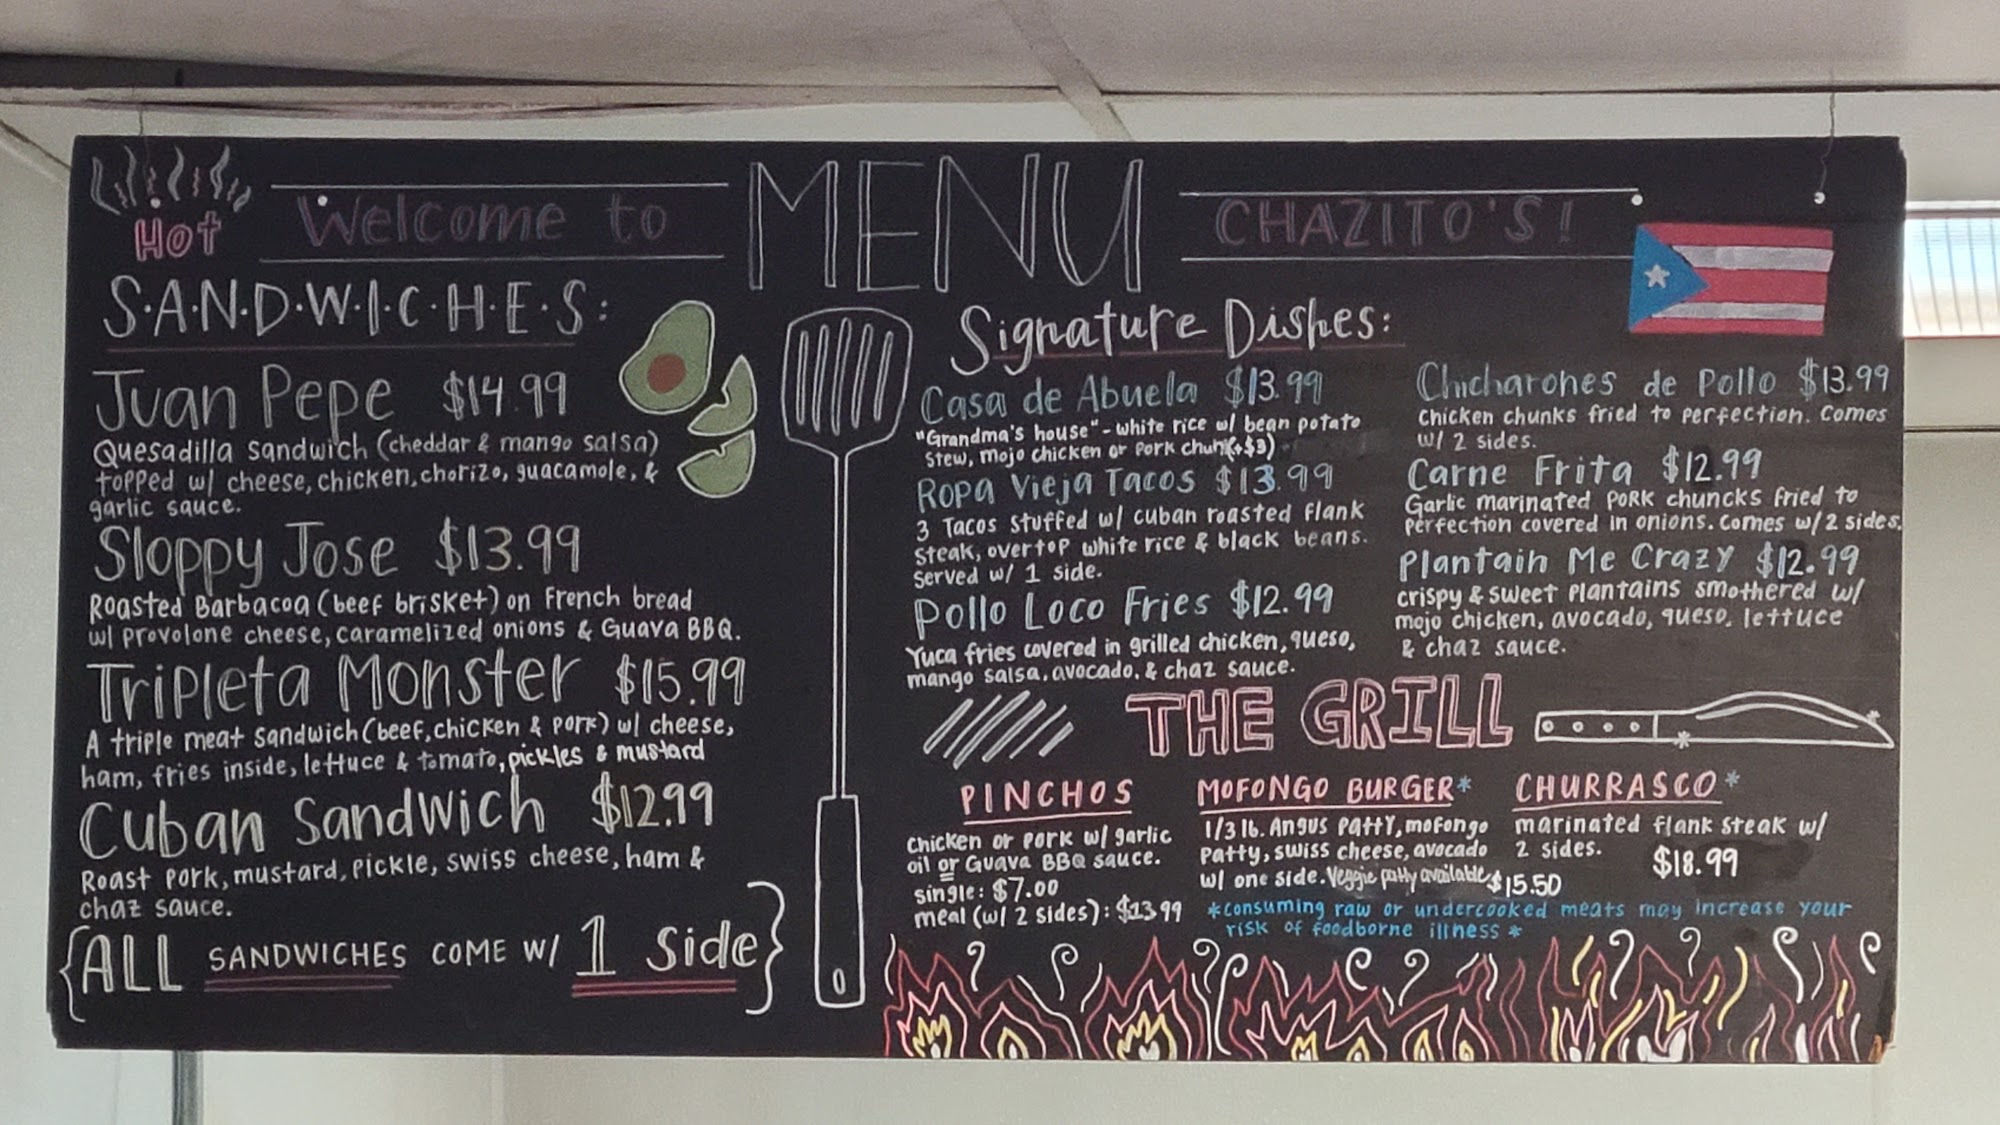 Hot
Welcome to
MENU
CHAZITO'S!
S·A·N·D·W·I·C·H·E·S:
Juan Pepe $14.99
Quesadilla sandwich (cheddar & mango salsa)
topped w/ cheese, chicken, chorizo, guacamole, &
garlic sauce.
Sloppy Jose $13.99
Roasted Barbacoa (beef brisket) on French bread
w/ provolone cheese, caramelized onions & Guava BBQ.
Tripleta Monster $15.99
A triple meat sandwich (beef, chicken & pork) w/ cheese,
ham, fries inside, lettuce & tomato, pickles & mustard
Cuban Sandwich $12.99
Roast pork, mustard, pickle, swiss cheese, ham &
chaz sauce.
{ALL SANDWICHES COME W/ 1 Side}
Signature Dishes:
Casa de Abuela $13.99
"Grandma's house" - white rice w/ bean potato
stew, mojo chicken or pork chunk(+$3)
Ropa Vieja Tacos $13.99
3 Tacos stuffed w/ cuban roasted flank
steak, overtop white rice & black beans.
served w/ 1 side.
Pollo Loco Fries $12.99
Yuca fries covered in grilled chicken, queso,
mango salsa, avocado, & chaz sauce.
Chicharones de Pollo $13.99
Chicken chunks fried to perfection. Comes
w/ 2 sides.
Carne Frita $12.99
Garlic marinated pork chuncks fried to
perfection covered in onions. comes w/ 2 sides.
Plantain Me Crazy $12.99
crispy & sweet plantains smothered w/
mojo chicken, avocado, queso, lettuce
& chaz sauce.
THE GRILL
PINCHOS
Chicken or pork w/ garlic
oil or Guava BBQ sauce.
single: $7.00
meal (w/ 2 sides): $13.99
MOFONGO BURGER*
1/3 lb. Angus patty, mofongo
patty, swiss cheese, avocado
w/ one side. Veggie patty available $15.50
CHURRASCO*
marinated flank steak w/
2 sides. $18.99
*consuming raw or undercooked meats may increase your
risk of foodborne illness*